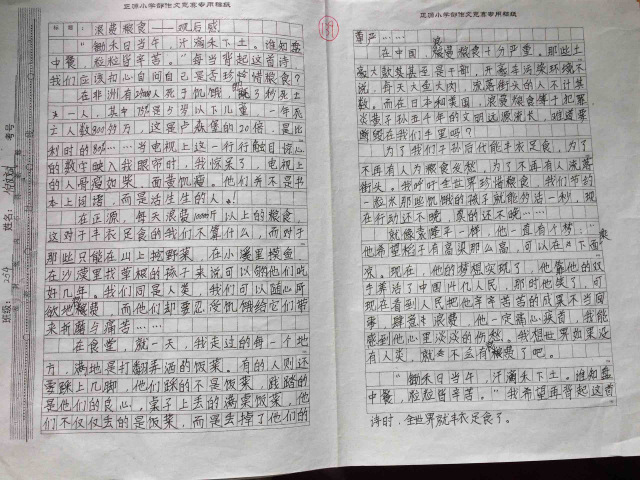 正源小学部作文竞赛专用稿纸
标题：浪费粮食——观后感
“锄禾日当午，汗滴禾下土。谁知盘
中餐，粒粒皆辛苦。”每当背起这首诗，
我们应该扪心自问自己是否珍惜粮食？
在非洲有2800人死于饥饿
一人，其中75%是5岁以下儿童，一年死
亡人数300多万，这是卢森堡的20倍，是比
利时的80%……当电视上这一行行触目惊心
的数字映入我眼帘时，我惊呆了，电视上
的人骨瘦如柴，面黄饥瘦。他们并不是书
本上词语，而是活生生的人。
在正源，每天浪费1000斤以上的粮食，
这对于丰衣足食的我们不算什么，而对于
那些只能在山上挖野菜，在小溪里摸鱼，
在沙漠里找草根的孩子来说可以够他们吃
好几年。我们同是人类，我们可以随心所
欲地浪费，而他们却要忍没饥饿给它们带
来折磨与痛苦……
在食堂，就一天，我走过的每一个地
方，满地是打翻弄洒的饭菜。有的人则还
要踩上几脚，他们踩的不是饭菜，践踏的
是他们的良心，桌子上丢的满桌饭菜，他
们不仅仅丢的是饭菜，而是丢掉了他们的
班级：254
姓名：
考号
正源小学部作文竞赛专用稿纸
尊严……
在中国，浪费粮食十分严重。那些土
豪大款甚至是干部，开豪车污染环境不
说，每天大鱼大肉，流落街头的人不计其
数。而在日本和美国，浪费粮食等于犯罪
炎黄子孙五千年的文明远源流长，难道要
断绝在我们手里吗？
为了我们子孙后代能丰衣足食，为了
不再有人为粮食发愁，为了不再有人流落
街头。我呼吁全世界珍惜粮食，我们节约
一粒米那些饥饿的孩子就能多活一秒，现
在行动还不晚，真的还不晚……
就像袁隆平一样，他一直有个梦：“
他希望稻子有高粱那么高，可以在下面乘
凉。现在，他的梦想实现了，他靠他的双
手养活了中国14亿人民，那时他笑了，可
现在看到人民把他辛辛苦苦的成果不当回
事，肆意浪费，他一定痛心疾首，我能
感到他心里淡淡的伤愁。我想世界如果没
有人类，就不会有浪费了吧。
“锄禾日当午，汗滴禾下土。谁知盘
中餐，粒粒皆辛苦。”我希望再背起这首
诗时，全世界就丰衣足食了。